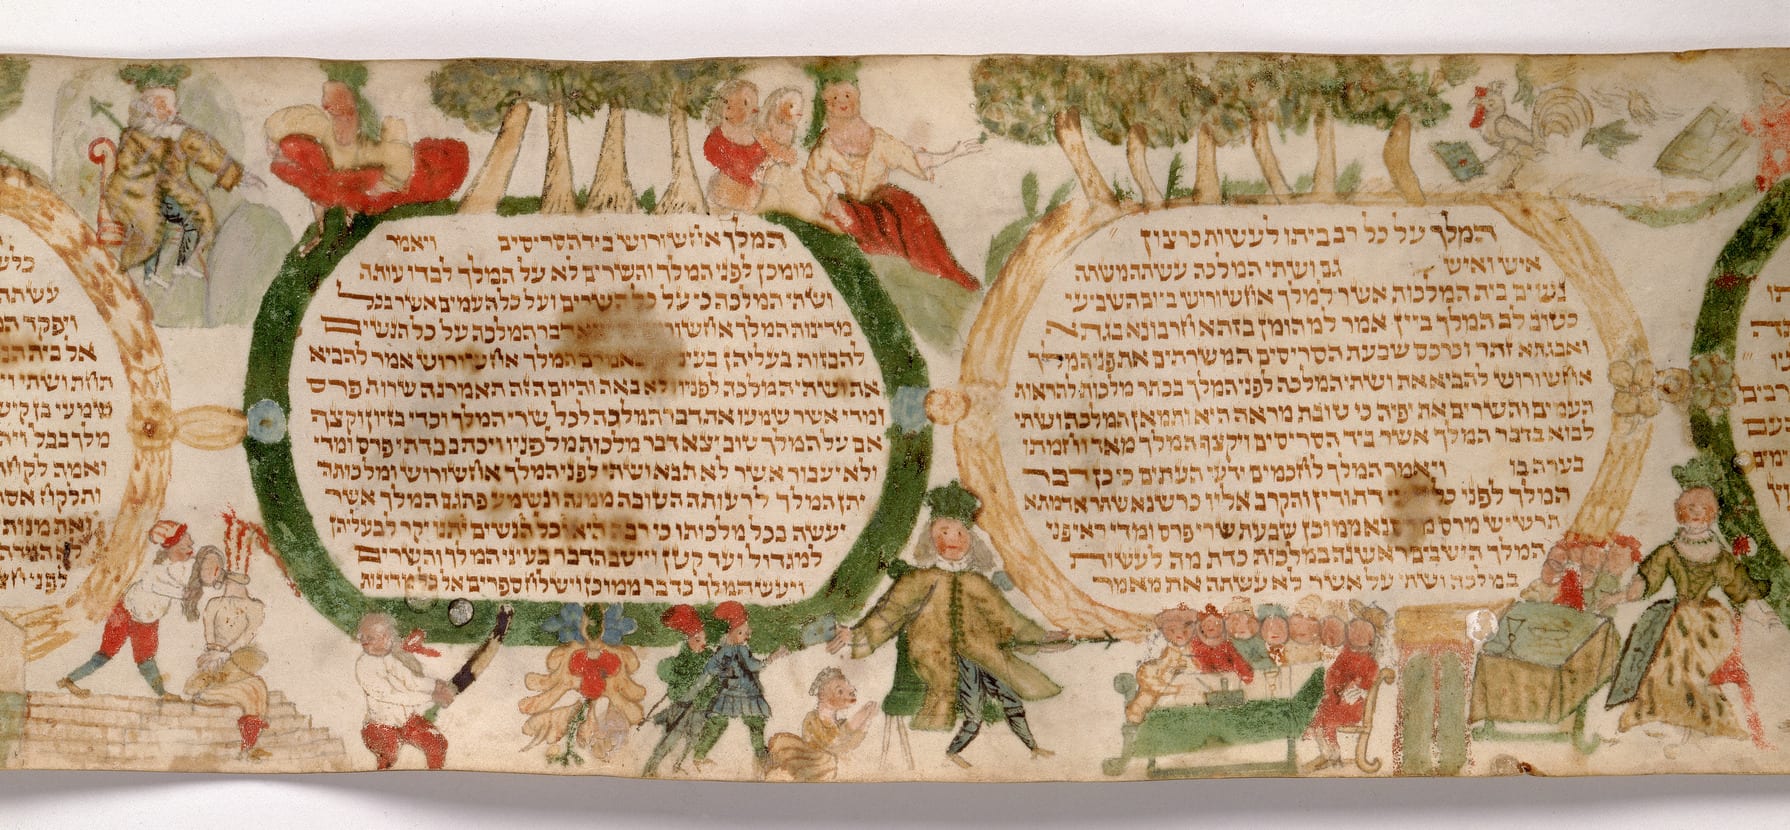 המלך על כל רב ביתו לעשות כרצון
איש ואיש גם ושתי המלכה עשתה משתה
נשים בית המלכות אשר למלך אחשורוש ביום השביעי
כטוב לב המלך ביין אמר למהומן בזתא חרבונא בגתא
ואבגתא זתר וכרכס שבעת הסריסים המשרתים את פני המלך
אחשורוש להביא את ושתי המלכה לפני המלך בכתר מלכות להראות
העמים והשרים את יפיה כי טובת מראה היא ותמאן המלכה ושתי
לבוא בדבר המלך אשר ביד הסריסים ויקצף המלך מאד וחמתו
בערה בו ויאמר המלך לחכמים ידעי העתים כי כן דבר
המלך לפני דת ודין והקרב אליו כרשנא שתר אדמתא
תרשיש מרס ממוכן שבעת שרי פרס ומדי ראי פני
המלך הישבים ראשנה במלכות כדת מה לעשות
במלכה ושתי על אשר לא עשתה את מאמר
המלך אחשורוש ביד הסריסים ויאמר
מומכן לפני המלך והשרים לא על המלך לבדו עותה
ושתי המלכה כי על כל השרים ועל כל העמים אשר בכל
מדינות המלך דבר המלכה על כל הנשים
להבזות בעליהן באמרם המלך אחשורוש אמר להביא
את ושתי המלכה לפניו ולא באה והיום הזה תאמרנה שרות פרס
ומדי אשר שמעו את דבר המלכה לכל שרי המלך וכדי בזיון וקצף
אם על המלך טוב יצא דבר מלכות מלפניו ויכתב בדתי פרס ומדי
ולא יעבור אשר לא תבא ושתי לפני המלך אחשורוש ומלכותה
יתן המלך לרעותה הטובה ממנה ונשמע פתגם המלך אשר
יעשה בכל מלכותו כי רבה היא וכל הנשים יתנו יקר לבעליהן
למגדול ועד קטן וייטב הדבר בעיני המלך והשרים
ויעש המלך כדבר ממוכן וישלח ספרים אל כל מדינות
עשתה
ויפקד
אל בית
תחת ושתי
שמעי בן קיש
מלך בבל
ואמה לקוחה
ותלקח
ואת מנותה